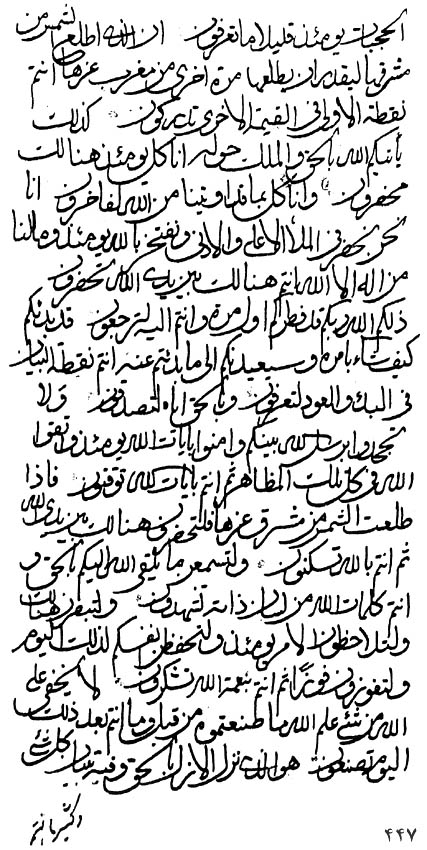 الحجبات يومئذ قليلا ما تعرفون ان الذي اطلع الشمس من
مشرقها ليقدر ان يطلعها مرة اخرى من مغرب عزها انتم
نقطة الاولى في القيمة الاخرى تدركون كذلك
يأتيكم الله بالحق والملك حوله انا كل يومئذ هنالك
محضرون وانا كل بما قد اوتينا من الله لفاخرون انا
نحن نحضر في الملأ الاعلى والادنى ونفتخر بالله يومئذ وما لنا
من اله الا الله انتم هنالك بين يدي الله تحضرون
ذلكم الله ربكم قد فطركم اول مرة وانتم اليه لترجعون قد بدئكم
كيف شاء بامره وسيعيدنكم الى ما بدئتم عنه انتم نقطة البيان
في البدء والعود لتعرفون وبالحق اياه لتصدقون ولا
تجعلوا بين الله بينكم وامنوا بايات الله يومئذ واتقوا
الله في كل تلك المظاهر ثم انتم بايات الله توقنون فاذا
طلعت الشمس من مشرق عزها فلتحضرون هنالك بين يدي الله
ثم انتم بالله تسكنون ولتسمعن ما يلقي الله اليكم بالحق و
انتم كلمات الله من لسان ذاته تشهدون ولتبصرن هنالك
ولتلاحظون الامر يومئذ ولتحفظن انفسكم لذلك اليوم
ولتفوزون فوزا ثم انتم بنعمة الله تشكرون لا يخفى على
الله من شئ علم الله ما صنعتموه من قبل وما انتم بعد ذلك
اليوم تصنعون هو الذي نزل الايات بالحق وفيه بيان كل شئ
۴۴۷